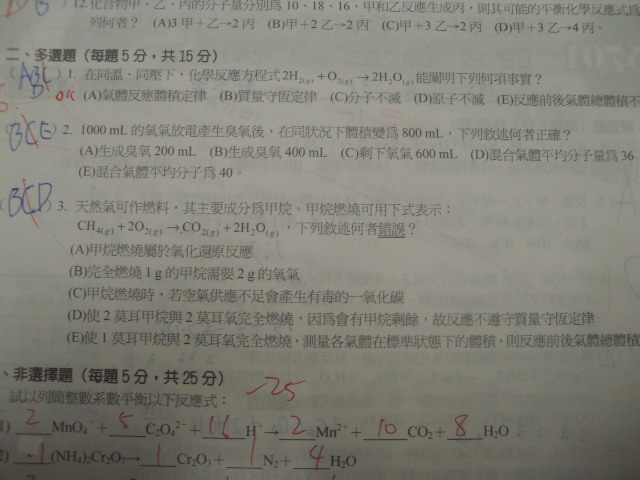 12.化合物甲、乙、丙的分子量分別爲 10、18、16,甲和乙反應生成丙,則其可能的平衡化學反應式爲
列何者? (A)3 甲+乙→2 丙 (B)甲+2 乙→2 丙 (C)甲+3 乙→2 丙 (D)甲+3 乙→4 丙。
二、多選題(每題5分,共15分)
1. 在同溫、同壓下,化學反應方程式2H2(g)+O2(g)→2H2O(g)能闡明下列何項事實?
(A)氣體反應體積定律 (B)質量守恆定律 (C)分子不滅 (D)原子不滅 (E)反應前後氣體總體積不
BCE 2. 1000 mL 的氧氣放電產生臭氧後,在同狀況下體積變爲 800 mL,下列敘述何者正確?
(A)生成臭氧 200 mL (B)生成臭氧 400 mL (C)剩下氧氣 600 mL (D)混合氣體平均分子量爲 36
(E)混合氣體平均分子爲 40。
(BCD) 3. 天然氣可作燃料,其主要成分爲甲烷。甲烷燃燒可用下式表示:
CH4(g)+2O2(g)→CO2(g)+2H2O(g),下列敘述何者錯誤?
(A)甲烷燃燒屬於氧化還原反應
(B)完全燃燒 1 g 的甲烷需要 2 g 的氧氣
(C)甲烷燃燒時,若空氣供應不足會產生有毒的一氧化碳
(D)使 2 莫耳甲烷與 2 莫耳氧完全燃燒,因爲會有甲烷剩餘,故反應不遵守質量守恆定律
(E)使 1 莫耳甲烷與 2 莫耳氧完全燃燒,測量各氣體在標準狀態下的體積,則反應前後氣體總體積
、非選擇題(每題5分,共25分)
-25
試以列簡整數系數平衡以下反應式:
1) 2 MnO4⁻+ 5 C2O4²⁻+ 16 H → 2 Mn²⁺+ 10 CO2+ 8 H2O
2) 1 (NH4)2Cr2O7→ 1 Cr2O3+ 1 N2+ 4 H2O